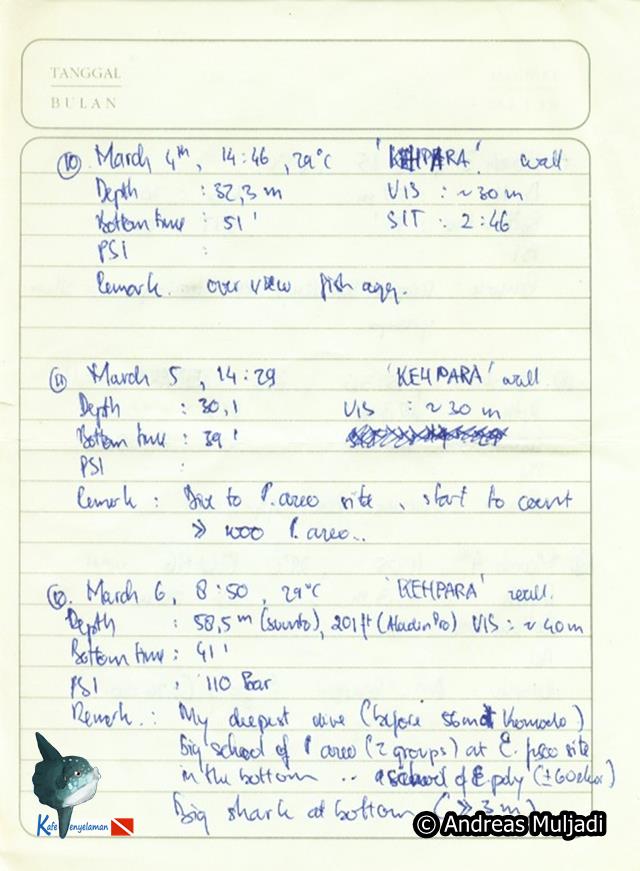 TANGGAL
BULAN
10. March 4th, 14:46, 29°C 'KEHPARA' wall
Depth : 32,3 m VIS : ~30 m
Bottom time : 51' SIT : 2:46
PSI :
Remark. over view fish agg.
11 March 5, 14:29 'KEHPARA' wall
Depth : 30,1 VIS : ~30 m
Bottom time : 39'
PSI :
Remark : Dive to P. areo site, start to count
>> 1000 P. areo..
12. March 6, 8:50, 29°C 'KEHPARA' wall.
Depth : 58,5 m (Suunto), 201 ft (Aladin Pro) VIS : ~40 m
Bottom time : 41'
PSI : 110 Bar
Remark. : My deepest dive (before 56 m at Komodo)
Big school of P. areo (2 groups) at E. site
in the bottom .. a school of E. poly (±60 ekor)
Big shark at bottom (>> 3 m)
Kafe Penyelaman
© Andreas Muljadi